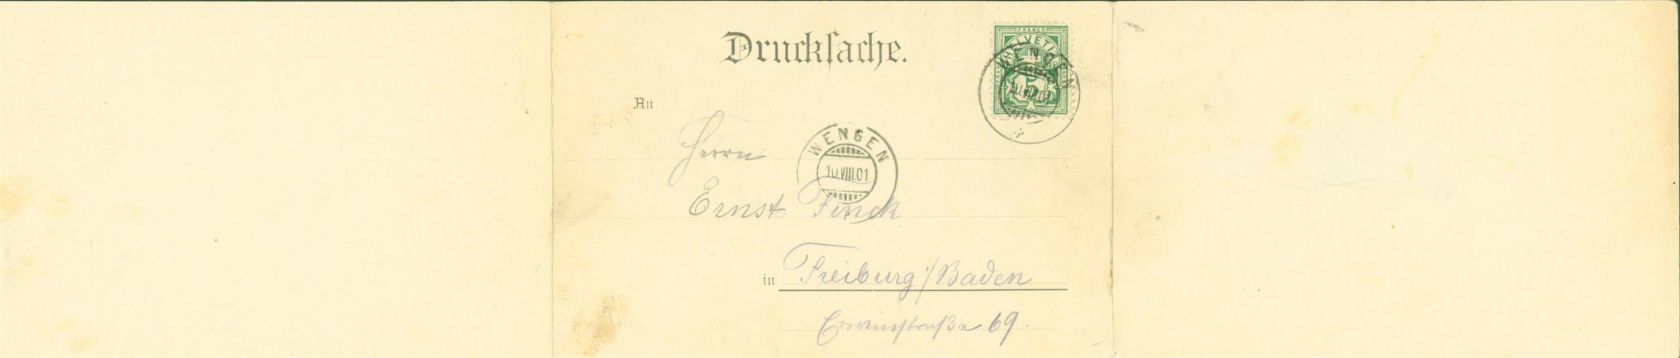 Drucksache.
FRANCO
HELVETIA
5
WENGEN
An
Herrn
WENGEN
10.VIII.01
Ernst Finck
in Freiburg/Baden
Erwinstraße 69.